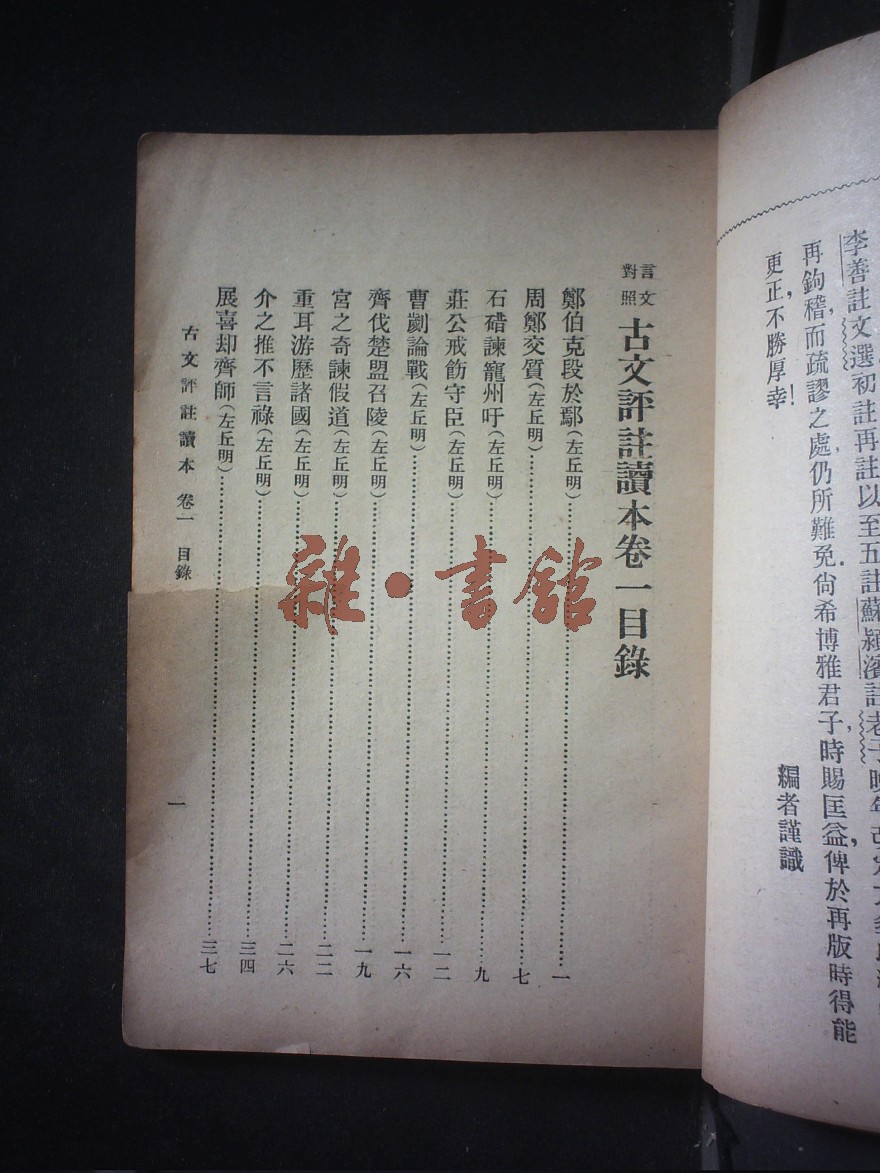 李善註文選初註再註以至五註蘇潁濱註老子晚年
再鉤稽，而疏謬之處，仍所難免．尙希博雅君子，時賜匡益，俾於再版時得能
更正，不勝厚幸！
編者謹識
言文對照 古文評註讀本卷一目錄
鄭伯克段於鄢(左丘明)……一
周鄭交質(左丘明)……七
石碏諫寵州吁(左丘明)……九
莊公戒飭守臣(左丘明)……一二
曹劌論戰(左丘明)……一六
齊伐楚盟召陵(左丘明)……一九
宮之奇諫假道(左丘明)……二二
重耳游歷諸國(左丘明)……二六
介之推不言祿(左丘明)……三四
展喜却齊師(左丘明)……三七
古文評註讀本 卷一 目錄
一
雜·書館